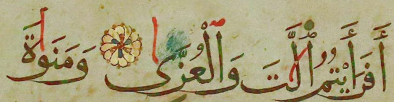 أَفَرَأَيْتُمُ ٱللَّٰتَ وَٱلْعُزَّىٰ وَمَنَوٰةَ